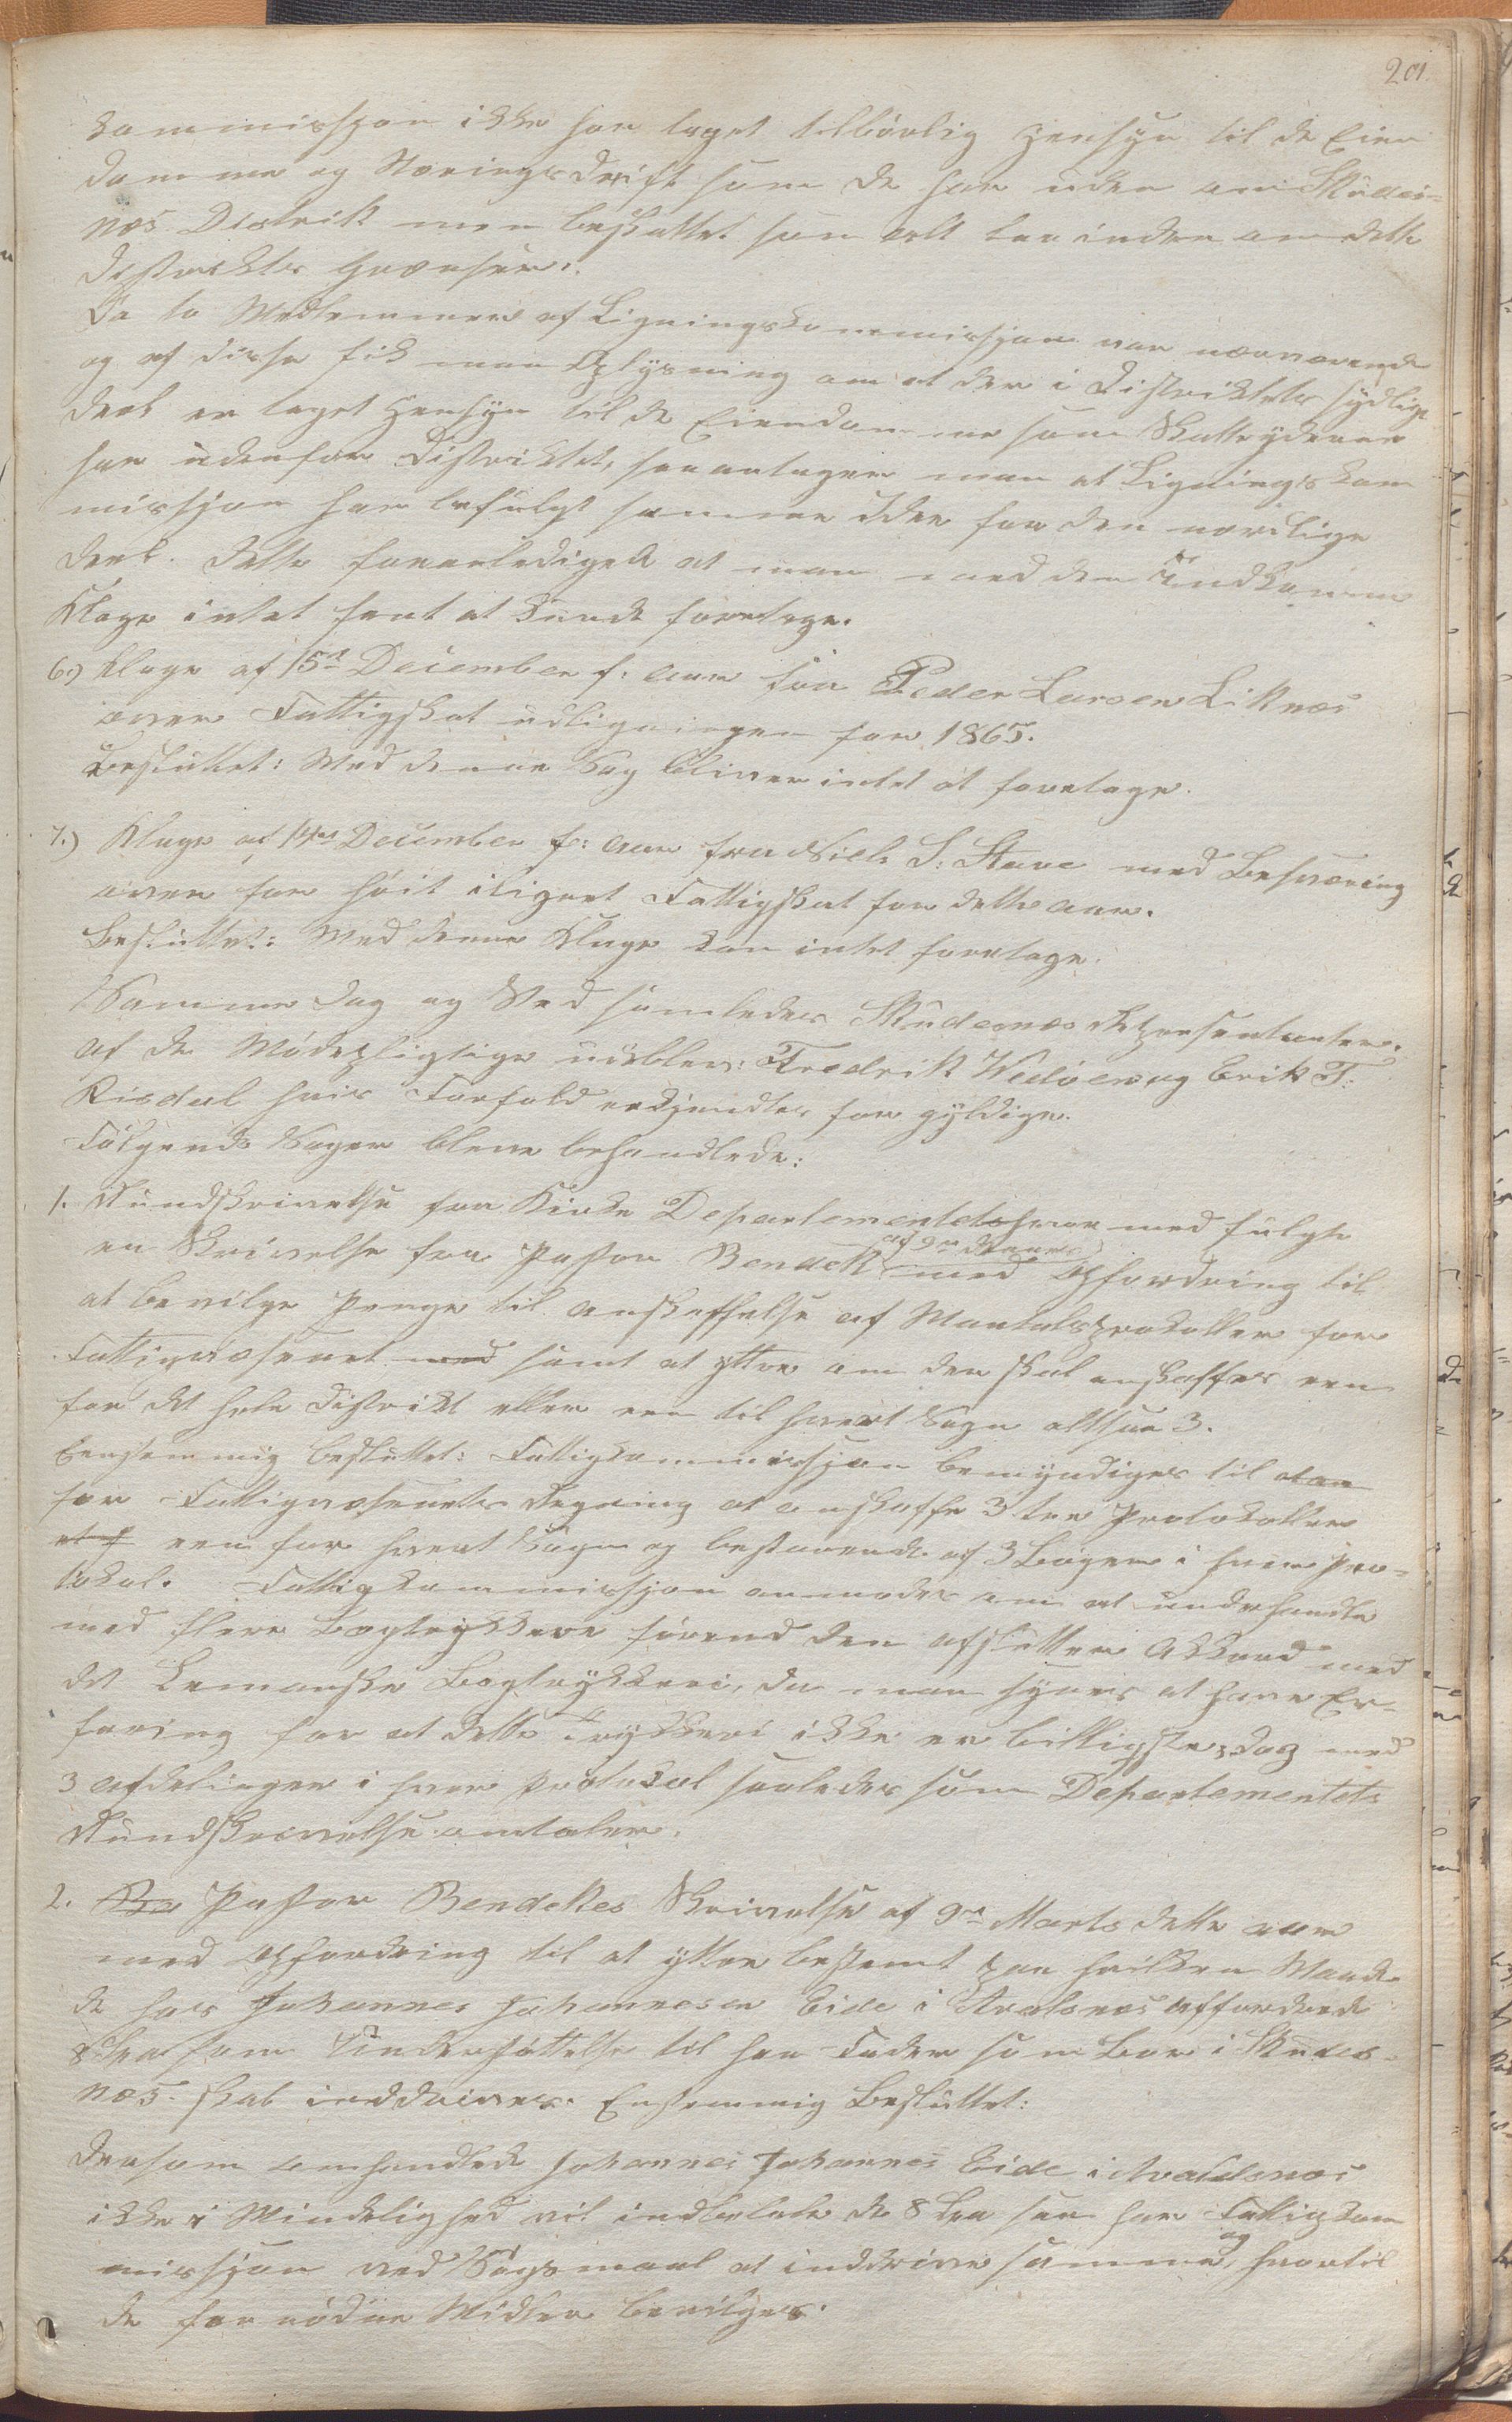 201.
kommissjon ikke har taget tilbörlig Hensyn til de Eien
domme og Næringsdrift som de har uden om Skudes-
næs Distrikt men beskattet som alt laa inden om dette
Distrikts Grændser.
Da to Medlemmer af Ligningskommissjon var nærværende
og af disse fik man Oplysning om at der i Distriktets sydlige
Deel er taget Hensyn til de Eiendomme som Skatteyderne
har udenfor Distriktet, saa antager man at Ligningskom
missjon har befulgt samme Idee for den nordlige
Deel. Dette foranlediged at man med den indkomne
Klage intet fant at kunde foretage.
6.) Klage af 15de December f: Aar fra Peder Larsen Liknæs
over Fattigskat udligningen for 1865.
Besluttet: Med denne Sag bliver intet at foretage.
7.) Klage af 14de December f: Aar fra Niels S: Stave med Besværing
over for höit ilignet Fattigskat for dette Aar.
Besluttet: Med denne Klage kan intet foretages.
Samme Dag og Sted samledes Skudesnæs Repræsentanter.
af de Mødepligtige udeblev: Fredrik Wedöen og Erik T:
Risdal hvis Forfald erkjendtes for gyldige.
Følgende Sager bleve behandlede:
1. Rundskrivelse fra Kirke Departementet hvor med fulgte
en Skrivelse fra Pastor Bendeke af 9de dennes med Opfordring til
at bevilge Penge til Anskaffelse af Mantalsprotokoller for
Fattigvæsenet med samt at yttre om der skal anskaffes een
for det hele Distrikt eller een til hvert Sogn altsaa 3.
Eenstemmig besluttet: Fattigkommissjon bemyndiges til at an
for Fattigvæsenets Regning at anskaffe 3 tre Protokoller
een for hvert Sogn og bestaaende af 3 Bøger i hver Pro-
tokol. Fattigkommissjon anmodes om at underhandle
med flere Bogtrykkere förend den afslutter Akkord med
det Lemanske Bogtrykkeri, da man synes at have Er-
faring for at dette Trykkeri ikke er billigste, dog med
3 Afdelinger i hver Protokol saaledes som Departementets
Rundskrivelse omtaler.
2. Pastor Bendekes Skrivelse af 9de Marts dette Aar
med Opfordring til at yttre bestemt paa hvilken Maade
de hos Johannes Johannesen Eide i Avalsnæs affordrede
8 Ltr som Understøttelse til han Fader som Bor i Skudes-
næs skal inddrives. Enstemmig Besluttet:
Dersom omhandlede Johannes Johannes Eide i Avaldsnæs
ikke i Mindelighed vil indbetale de 8 Ltr saa har Fattigkom
missjon ved Søgsmaal at inddrive samme, og hvortil
de for nødne Midler bevilges.